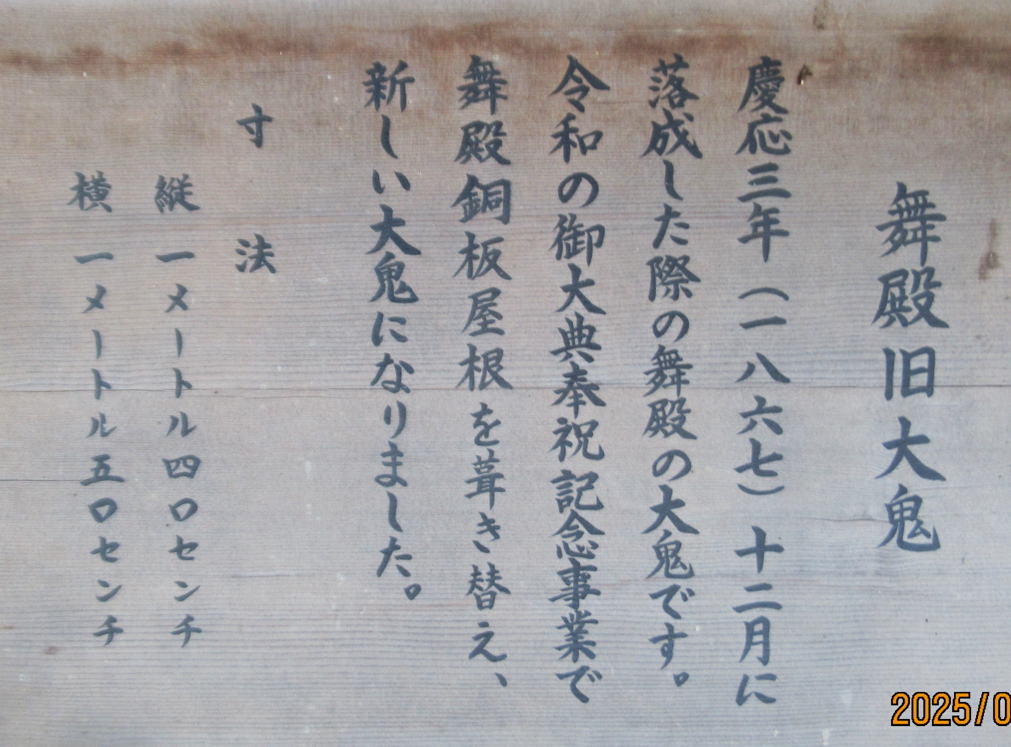 舞殿旧大鬼
慶応三年（一八六七）十二月に
落成した際の舞殿の大鬼です。
令和の御大典奉祝記念事業で
舞殿銅板屋根を葺き替え、
新しい大鬼になりました。
寸法
縦 一メートル四〇センチ
横 一メートル五〇センチ
2025/0